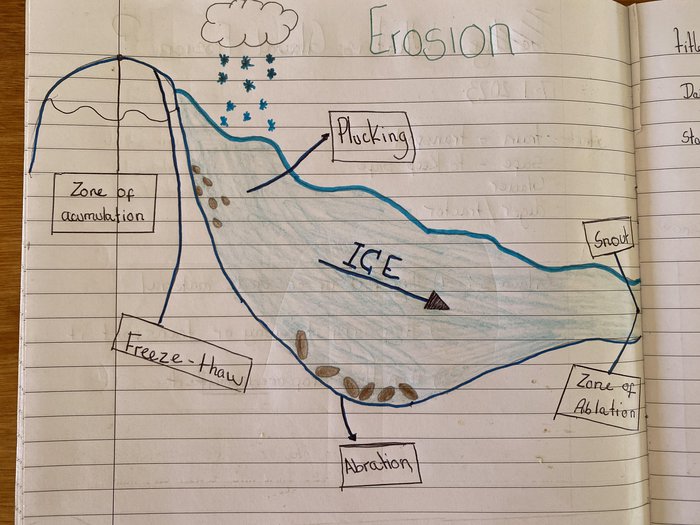 Erosion
Plucking
Zone of
acumulation
Snout
ICE
Freeze-thaw
Zone of
Ablation
Abration
titl
Da
Sta